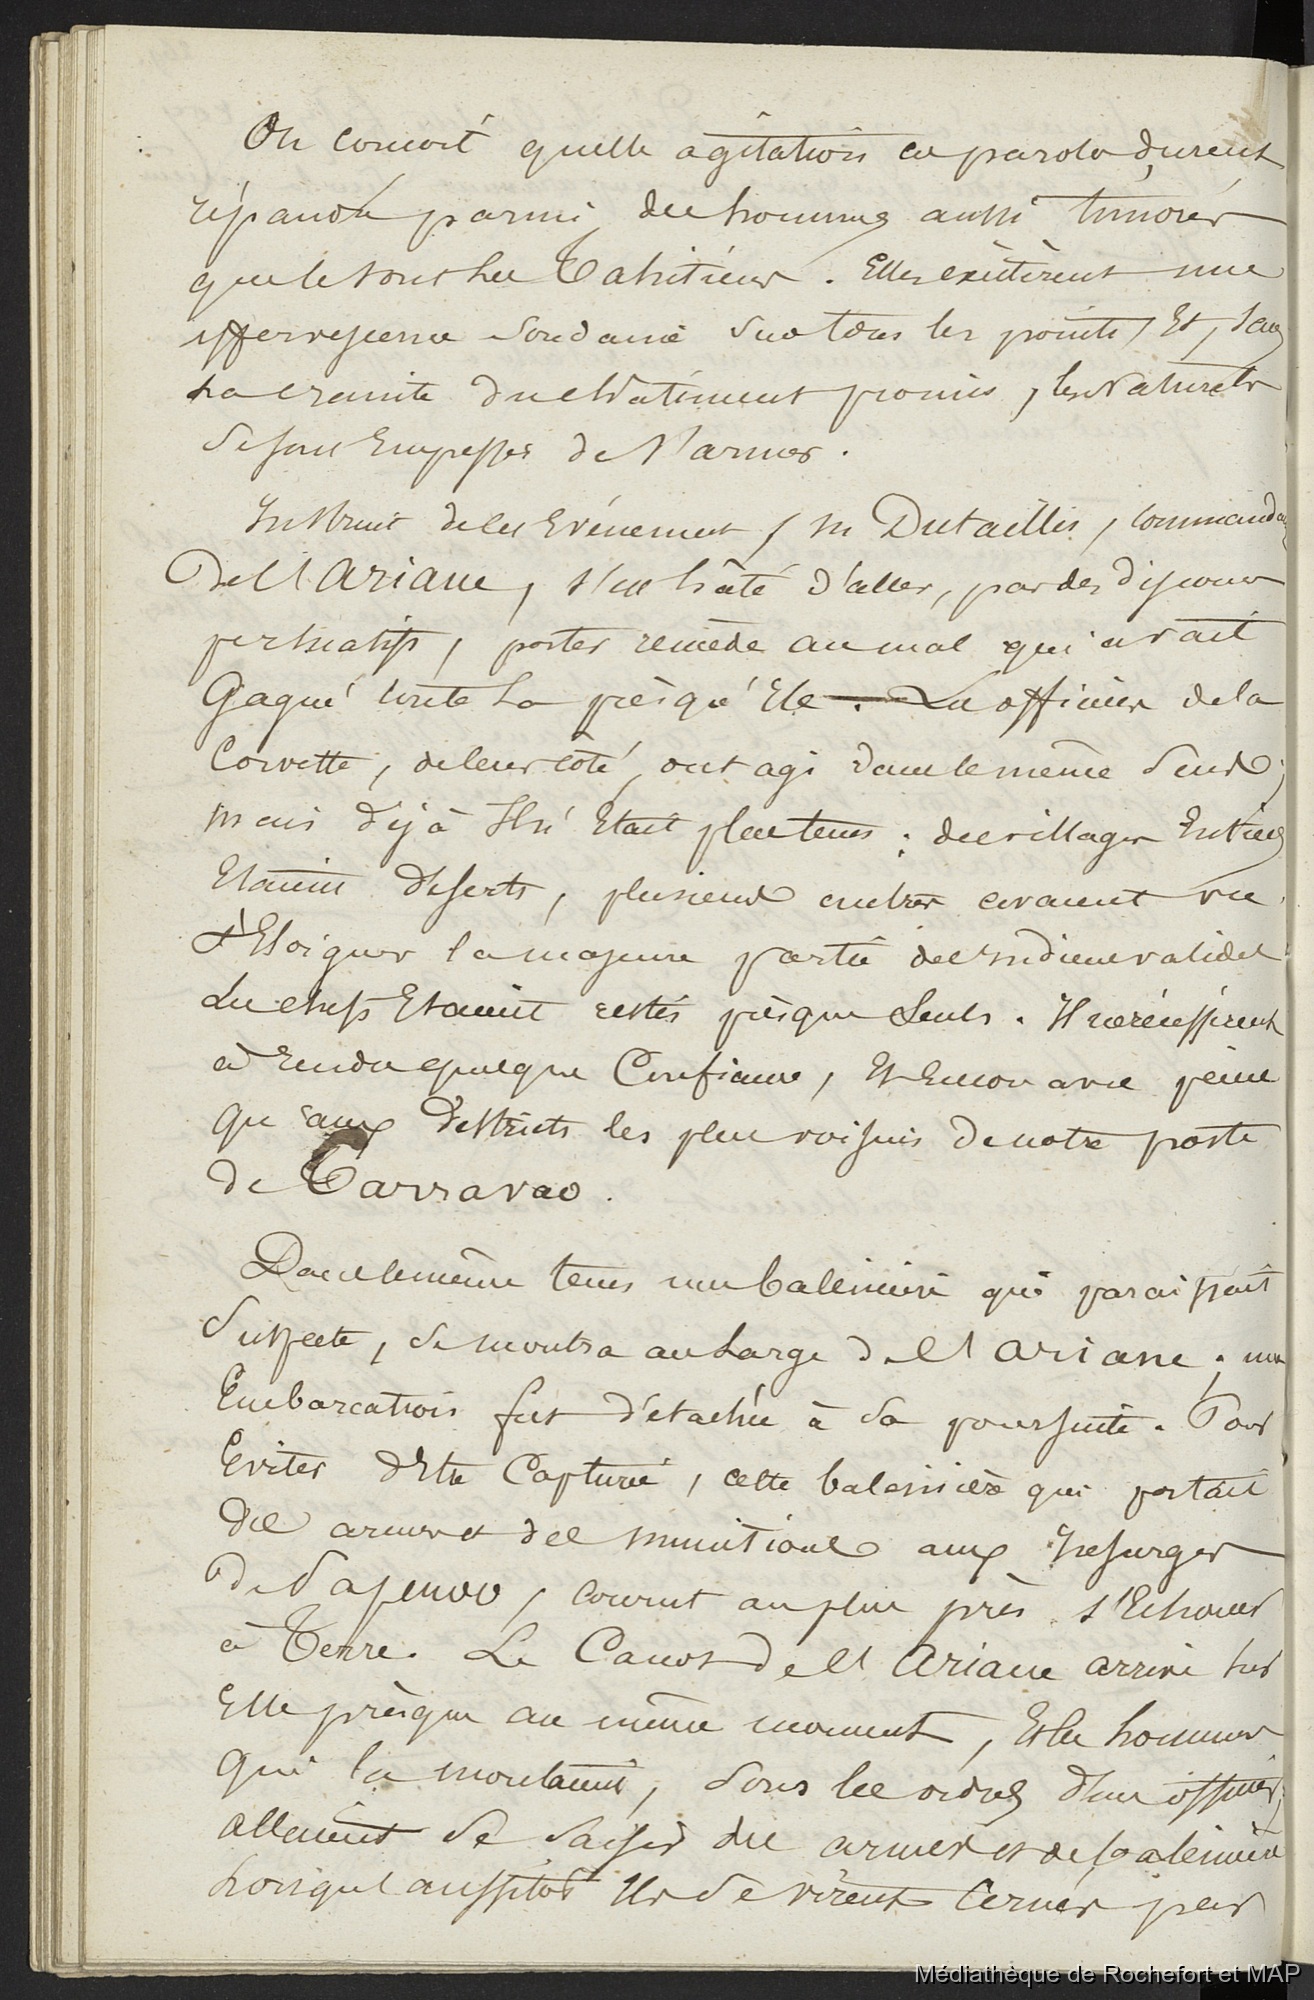 On conçoit quelle agitation ces paroles durent
répandre parmi des hommes aussi timorés
que le sont les Tahitiens. Elles excitèrent une
effervescence soudaine sur tous les points, Et, sans
La crainte du châtiment promis, les Naturels
se sont Empressés de s'armer.
Instruit de ces Evénements, Mr Dutaillis, commandant
De l'Ariane, s'est hâté d'aller, par des discours
persuasifs, porter remède au mal qui avait
Gagné toute La presqu'Ile. Les officiers de la
Corvette, de leur côté, ont agi dans le même sens;
mais déjà Il n'était plus tems: des villages Entiers
Etaient déserts, plusieurs autres avaient vu
s'Eloigner la majeure partie des Indiens valides
Les chefs Etaient restés presque seuls. Il ne réussirent
à rendre quelque Confiance, Et Encore avec peine
qu'aux districts les plus voisins de notre poste
de Tarravao.
Dans le même tems une baleinière qui paraissait
suspecte, se montra au Large de l'Ariane; une
Embarcation fut détachée à sa poursuite. Pour
Eviter d'Etre Capturée, cette baleinière qui portait
des armes et des munitions aux Insurgés
De Papenoo, courut au plus près s'Echouer
à Terre. Le Canot de l'Ariane arriva sur
Elle presque au même moment, Et les hommes
qui la montaient, sous les ordres d'un officier,
allaient se saisir des armes et de la baleinière
Lorsque aussitôt Ils se virent Cernés par
Médiathèque de Rochefort et MAP